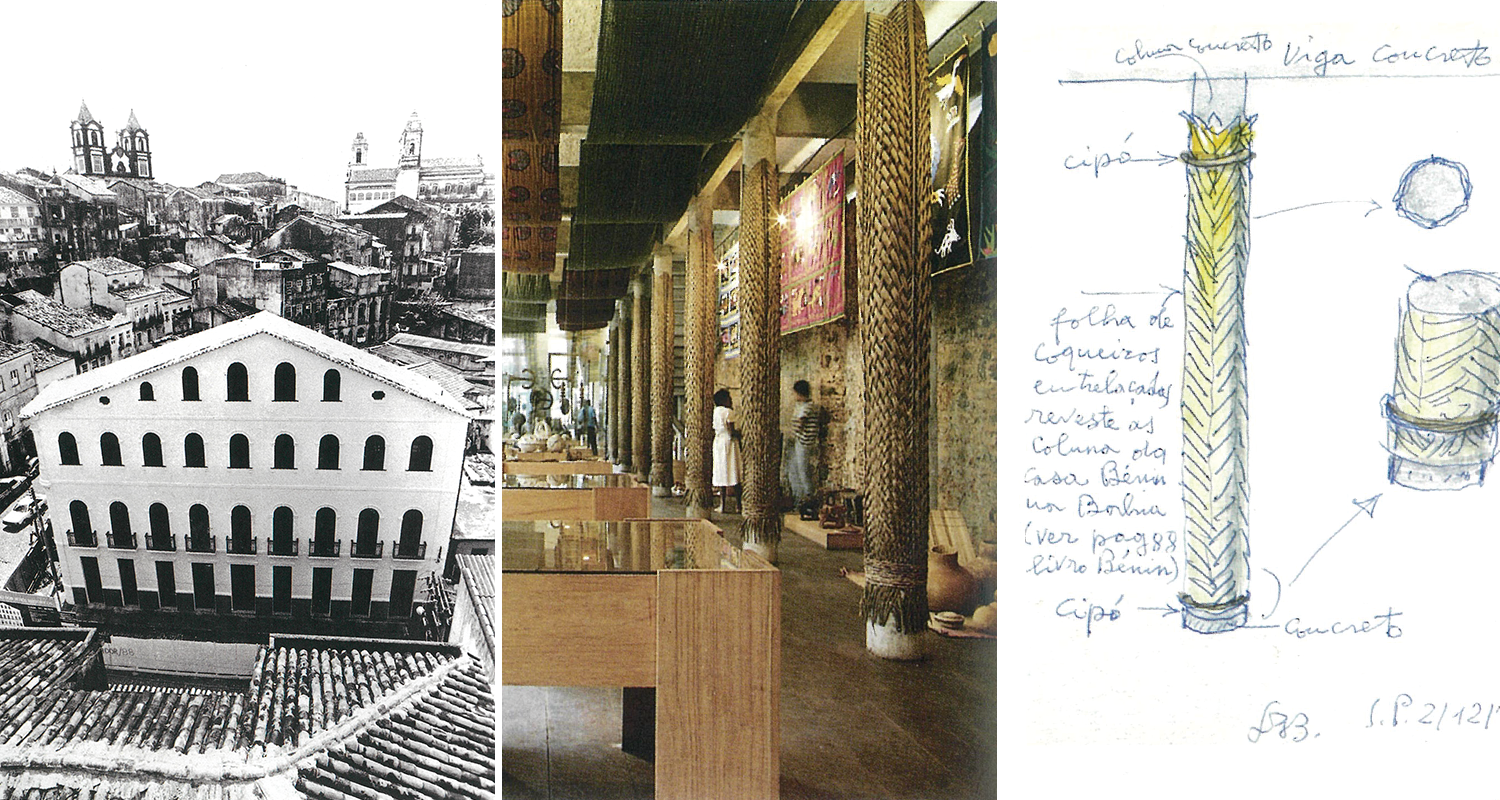 coluna concreto
Viga Concreto
cipó
folha de
coqueiros
entrelaçados
reveste as
coluna da
Casa Bénin
na Bahia
(ver pag 88
livro Bénin)
cipó
Concreto
S.P. 2/12/